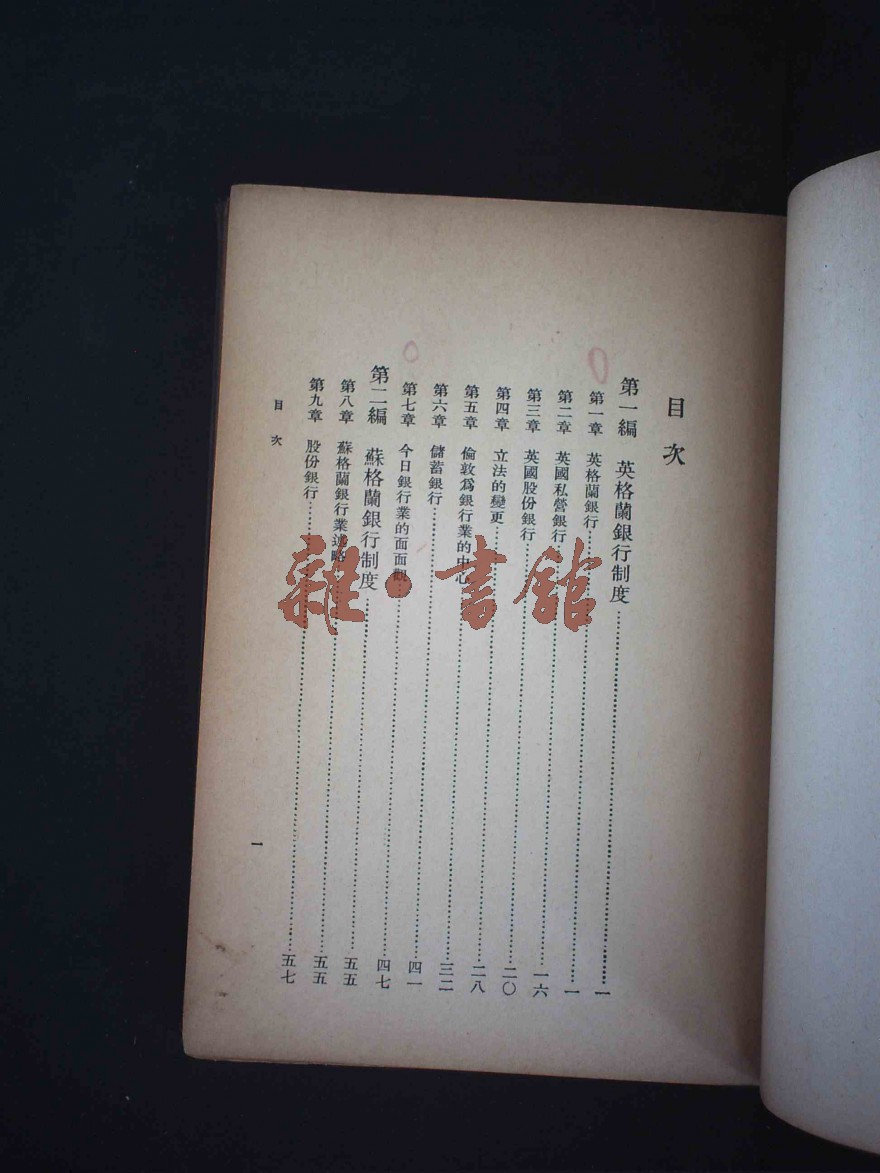 目次
第一編 英格蘭銀行制度……一
第一章 英格蘭銀行……一
第二章 英國私營銀行……一六
第三章 英國股份銀行……二〇
第四章 立法的變更……二八
第五章 倫敦爲銀行業的中心……三二
第六章 儲蓄銀行……四一
第七章 今日銀行業的面面觀……四七
第二編 蘇格蘭銀行制度……五五
第八章 蘇格蘭銀行業述略……五五
第九章 股份銀行……五七
目次
一
雜·書館